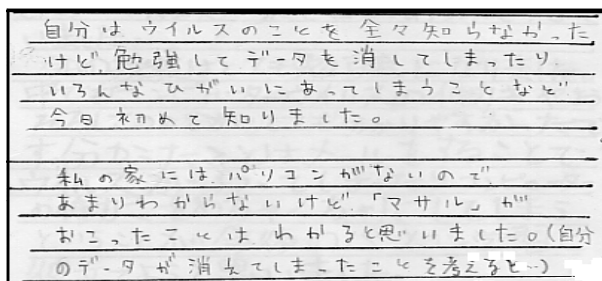 自分はウイルスのことを全々知らなかった
けど、勉強してデータを消してしまったり
いろんなひがいにあってしまうことなど
今日初めて知りました。
私の家には、パソコンがないので、
あまりわからないけど、「マサル」が
おこったことはわかると思いました。(自分
のデータが消えてしまったことを考えると…)